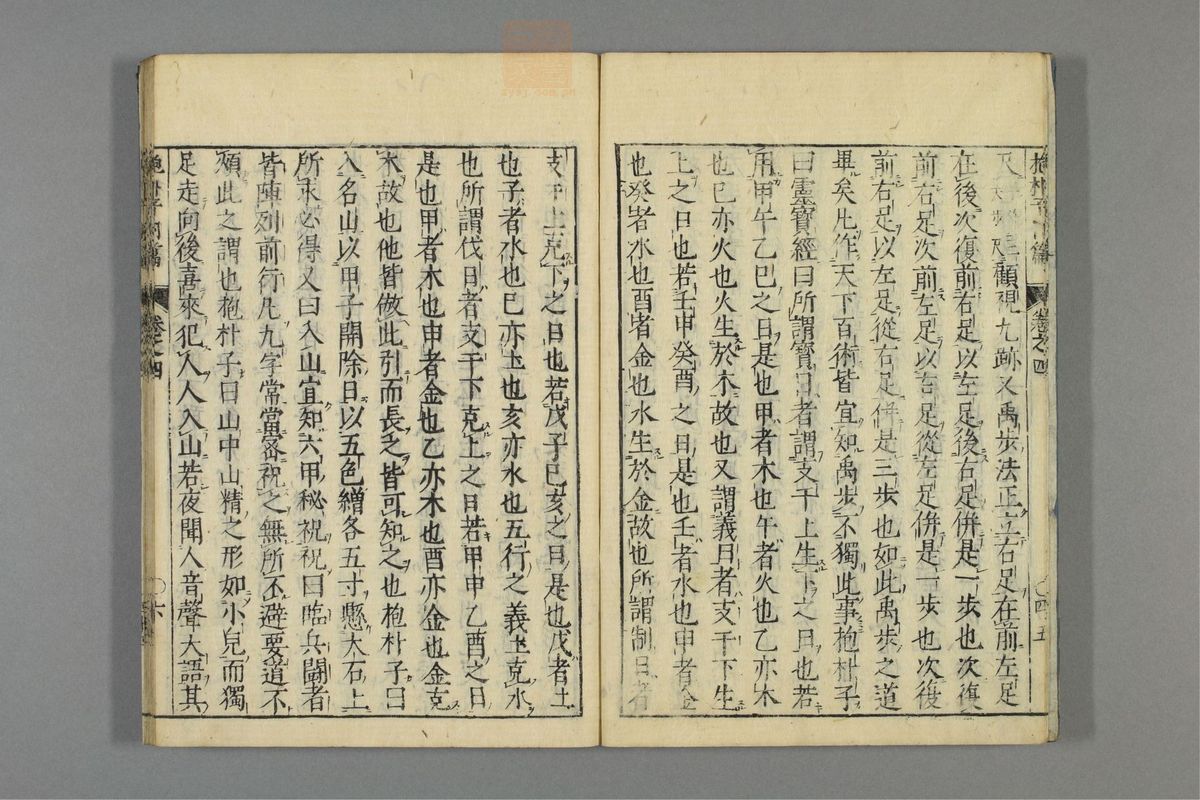 顧視九跡又禹步法正立右足在前左足
在後次復前右足以左足後右足併是一步也次復
前右足次前左足以右足從左足併是一步也次後
前右足以左足從右足併是三步也如此禹步之道
畢矣凡作天下百術皆宜知禹步不獨此事抱朴子
曰靈寶經曰所謂寶日者謂支干上生下之日也若
用甲午乙巳之日是也甲者木也午者火也乙亦木
也巳亦火也火生於木故也又謂義日者支干下生
上之日也若壬申癸酉之日是也壬者水也申者金
也癸者水也酉者金也水生於金故也所謂制日者
支干上克下之日也若戊子巳亥之日是也戊者土
也子者水也巳亦土也亥亦水也五行之義土克水
也所謂伐日者支干下克上之日若甲申乙酉之日
是也甲者木也申者金也乙亦木也酉亦金也金克
木故也他皆倣此引而長之皆可知之也抱朴子曰
入名山以甲子開除日以五色繒各五寸懸大石上
所求必得又曰入山宜知六甲秘祝祝曰臨兵鬪者
皆陣列前行凡九字常當密祝之無所不避要道不
煩此之謂也抱朴子曰山中山精之形如小兒而獨
足走向後喜來犯人人入山若夜聞人音聲大語其
卷之四
卷之四
六